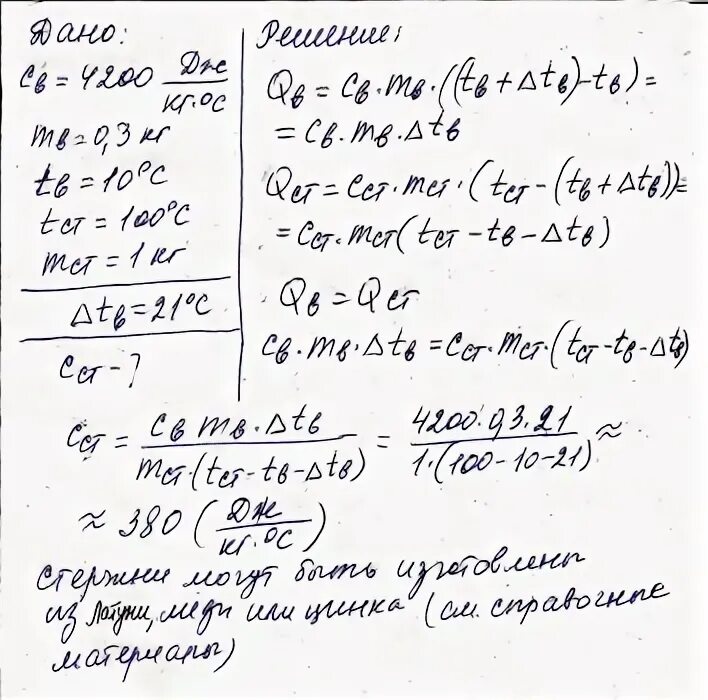 Дано:
Cв = 4200 Дж/кг·°C
mв = 0,3 кг
tв = 10°C
tст = 100°C
mст = 1 кг
Δtв = 21°C
Cст - ?
Решение:
Qв = Cв·mв·((tв + Δtв) - tв) =
= Cв·mв·Δtв
Qст = Cст·mст·(tст - (tв + Δtв)) =
= Cст·mст(tст - tв - Δtв)
Qв = Qст
Cв·mв·Δtв = Cст·mст·(tст - tв - Δtв)
Cст = Cв mв·Δtв / mст·(tст - tв - Δtв) = 4200·0,3·21 / 1·(100-10-21) ≈
≈ 380 (Дж/кг·°C)
Стержни могут быть изготовлены
из латуни, меди или цинка (см. справочные
материалы)